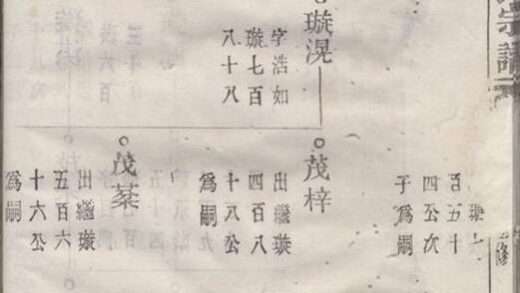 宗譜
修
百五十
四公次
子爲嗣
璇滉
字浩如
璇七百
八十八
茂梓
出繼璇
四百八
十八公
爲嗣
茂
出繼璇
五百六
十六公
爲嗣